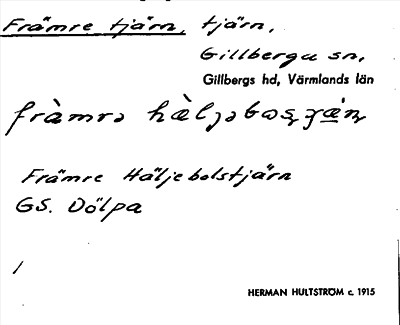 Främre tjärn, tjärn,
Gillberga sn,
Gillbergs hd, Värmlands län
fràmrə
Främre Häljebolstjärn
GS. Dölpa
/
HERMAN HULTSTRÖM c. 1915